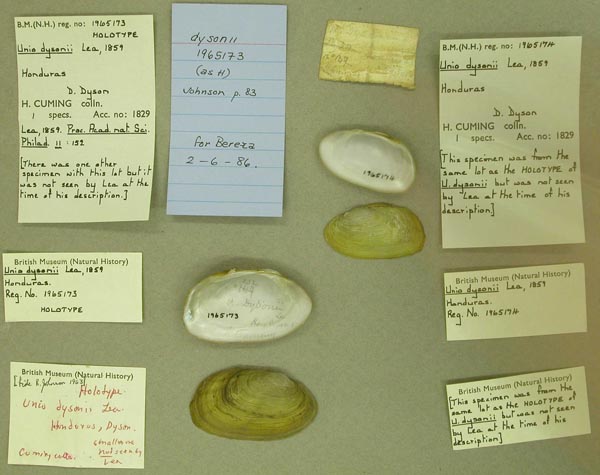 B.M.(N.H.) reg. no: 1965173
HOLOTYPE
Unio dysonii Lea, 1859
Honduras
D. Dyson
H. CUMING colln.
1 specs. Acc. no: 1829
Lea, 1859. Proc. Acad. nat. Sci.
Philad. 11 : 152
[There was one other
specimen with this lot but it
was not seen by Lea at the
time of his description.]
dysonii
1965173
(as H)
Johnson p. 83
for Bereza
2-6-86.
B.M.(N.H.) reg. no: 1965174
Unio dysonii Lea, 1859
Honduras
D. Dyson
H. CUMING colln.
1 specs. Acc. no: 1829
[This specimen was from the
same lot as the HOLOTYPE of
U. dysonii but was not seen
by Lea at the time of his
description.]
1965174
British Museum (Natural History)
Unio dysonii Lea, 1859
Honduras.
Reg. No. 1965173
HOLOTYPE
Dysonii
1965173
British Museum (Natural History)
Unio dysonii Lea, 1859
Honduras.
Reg. No. 1965174
British Museum (Natural History)
[fide R. Johnson 1963]
Holotype
Unio dysonii Lea
Honduras, Dyson.
smaller one
not seen by
Cuming colln. Lea
British Museum (Natural History)
[This specimen was from the
same lot as the HOLOTYPE of
U. dysonii but was not seen
by Lea at the time of his
description.]